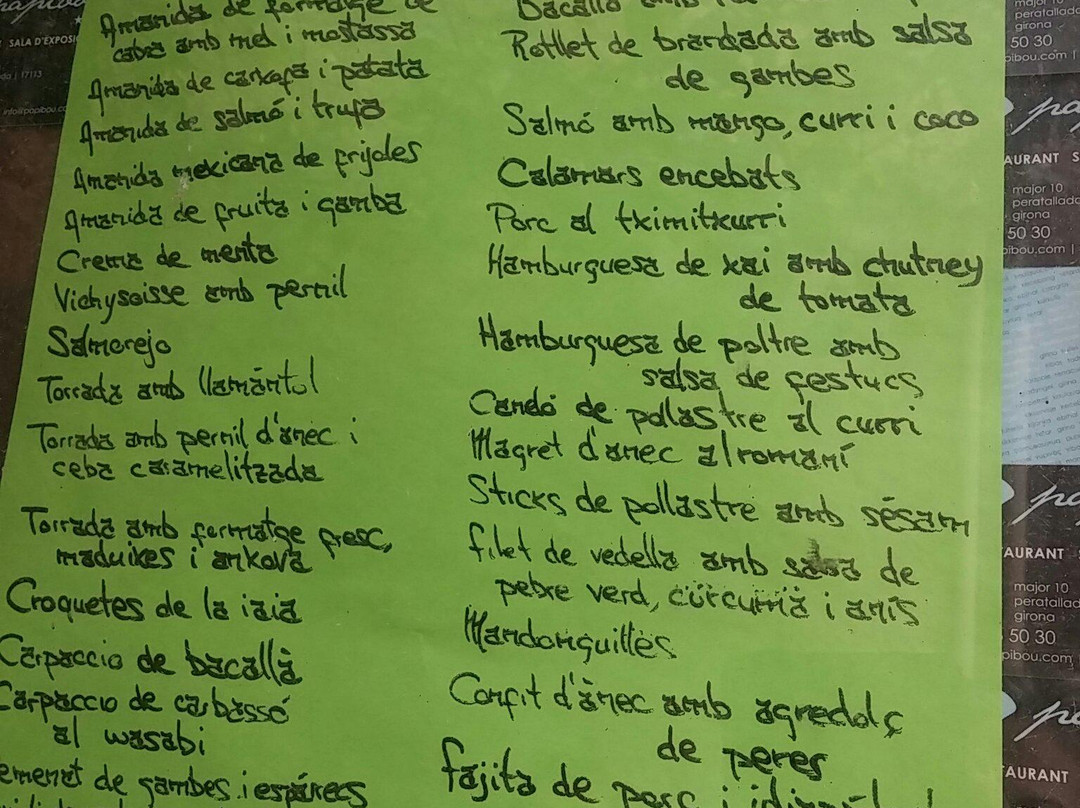 Amanida de formatge de
cabra amb mel i mostassa
Amanida de carxofa i patata
Amanida de salmó i trufa
Amanida mexicana de frijoles
Amanida de fruita i gamba
Crema de menta
Vichysoisse amb pernil
Salmorejo
Torrada amb llamàntol
Torrada amb pernil d'ànec i
ceba caramelitzada
Torrada amb formatge fresc,
maduixes i anxova
Croquetes de la iaia
Carpaccio de bacallà
Carpaccio de carbassó
al wasabi
de gambes i espàrecs
Bacallà amb
Rotllet de brandada amb salsa
de gambes
Salmó amb mango, curri i coco
Calamars encebats
Porc al tximitxurri
Hamburguesa de xai amb chutney
de tomata
Hamburguesa de poltre amb
salsa de festucs
Candó de pollastre al curri
Magret d'ànec al romaní
Sticks de pollastre amb sèsam
filet de vedella amb salsa de
pebre verd, cúrcuma i anís
Mandonguilles
Confit d'ànec amb agredolç
de peres
fajita de porc i
SALA D'EXPOSI
17113
info@papibou.co
major 10
peratallada
girona
50 30
pibou.com
AURANT S
major 10
peratallada
girona
50 30
pibou.com
AURANT
major 10
peratallad
girona
50 30
pibou.com
AURANT